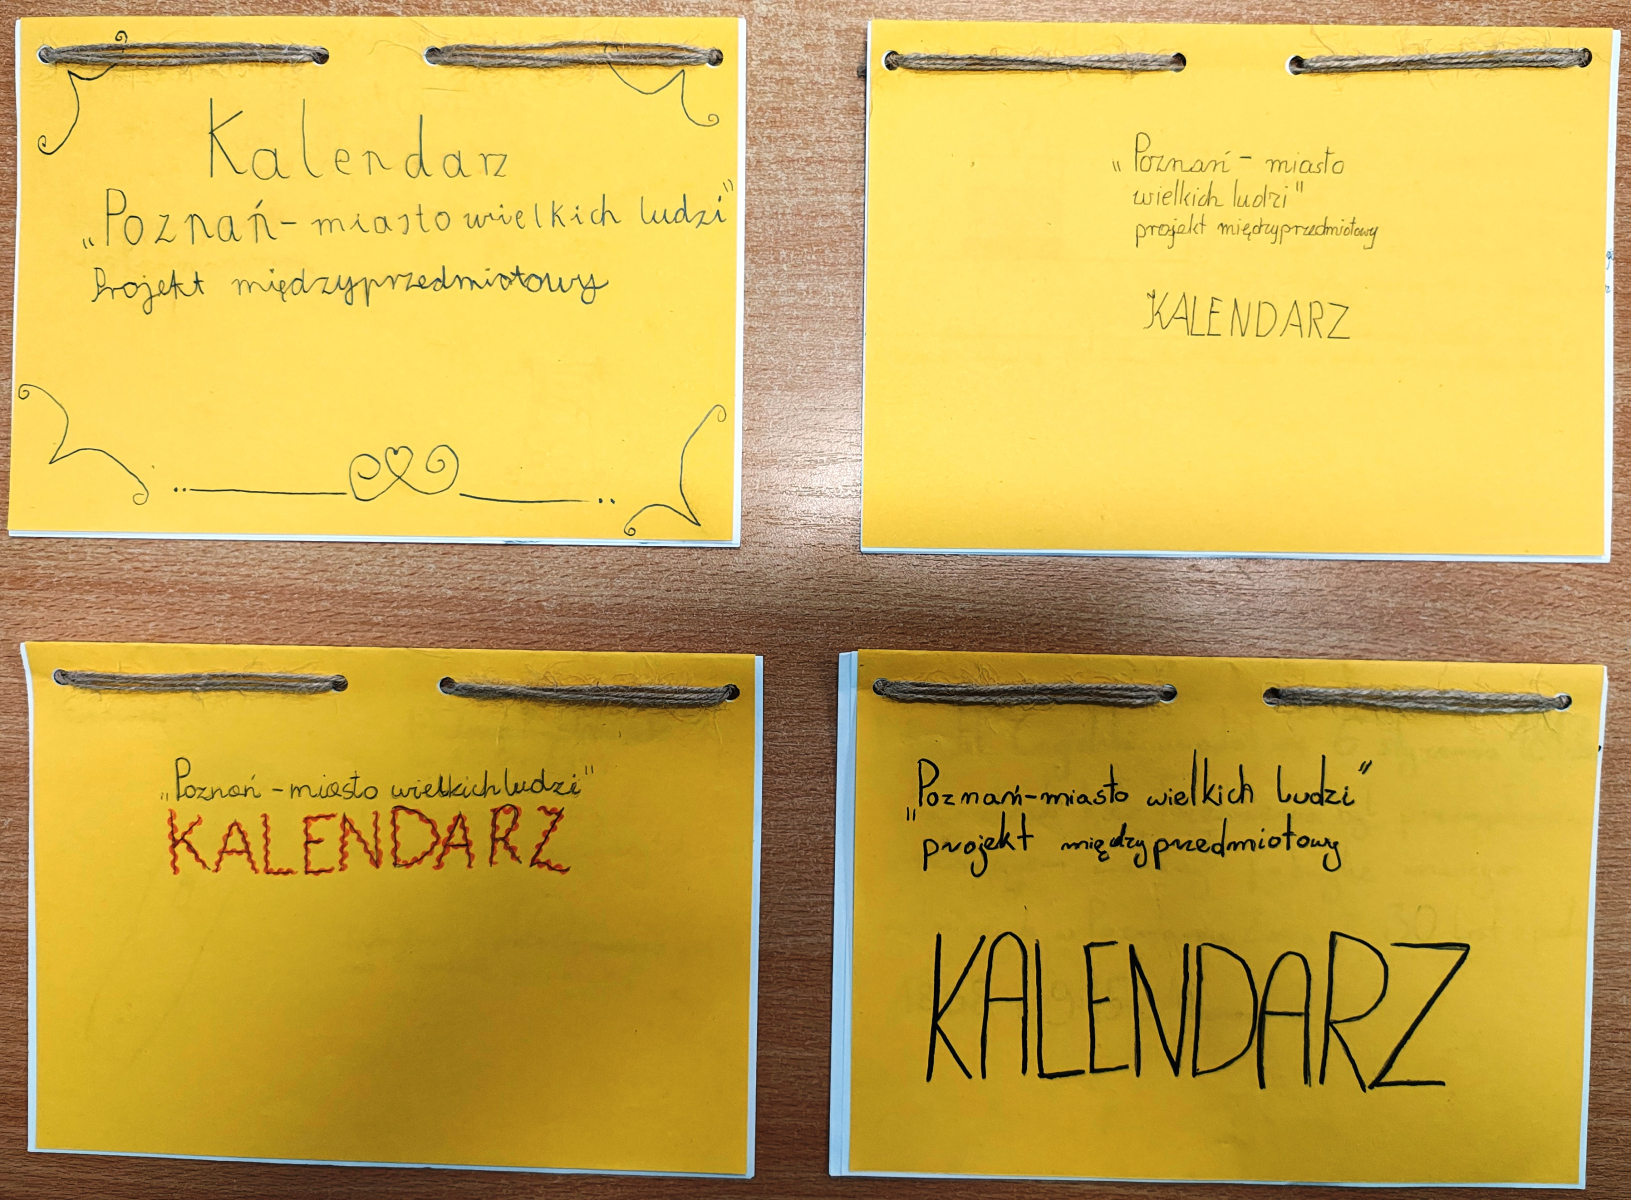 Kalendarz
„Poznań - miasto wielkich ludzi"
Projekt międzyprzedmiotowy
„Poznań - miasto
wielkich ludzi"
projekt międzyprzedmiotowy
KALENDARZ
„Poznań - miasto wielkich ludzi"
KALENDARZ
„Poznań - miasto wielkich ludzi"
projekt międzyprzedmiotowy
KALENDARZ